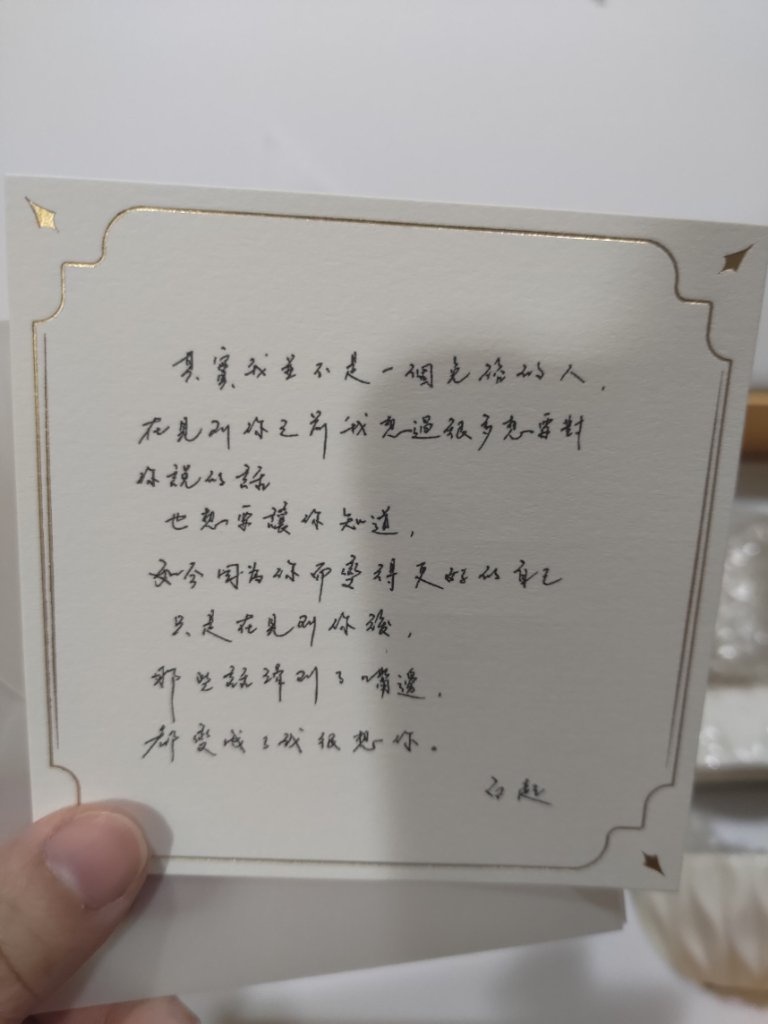 其實我並不是一個完碼的人，
在見到你之前我想過很多想要對
你說的話
也想要讓你知道，
如今因為你而變得更好的自己
只是在見到你後，
那些話掉到了嘴邊，
都變成了我很想你。
白起